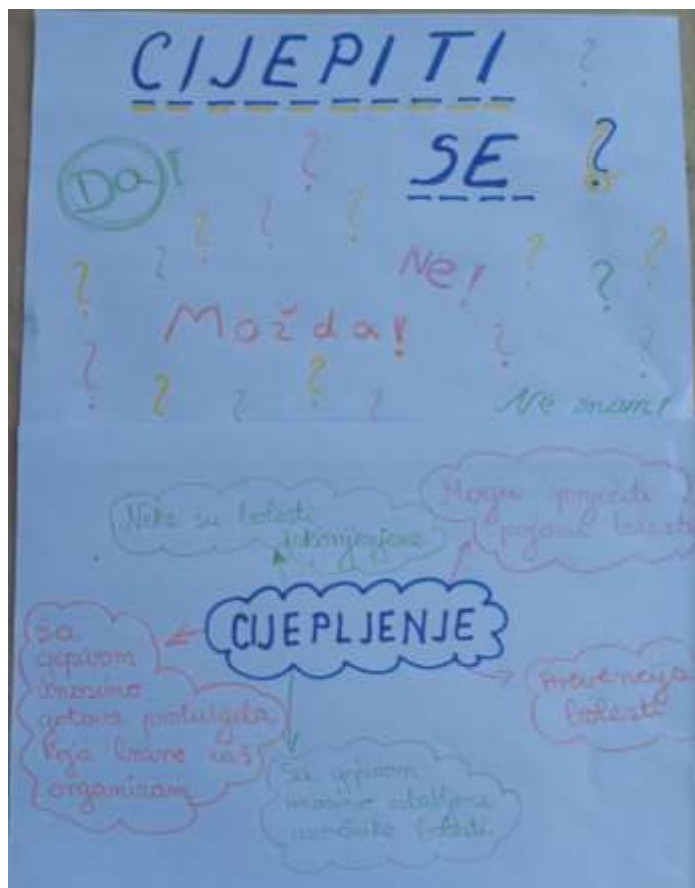 CIJEPITI
SE ?
Da!
Ne!
Možda!
Ne znam!
Neke su bolesti
iskorijenjene
Mogu spriječiti
pojavu bolesti
CIJEPLJENJE
Sa
cjepivom
unosimo
gotova protutijela
koja brane naš
organizam
Prevencija
bolesti
Sa cjepivom
unosimo oslabljene
uzročnike bolesti